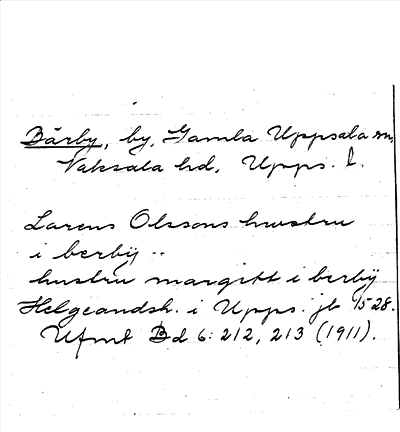 Bärby, by, Gamla Uppsala sn,
Vaksala hd, Upps. l.
Larens Olssons hwstru
i berbÿ ..
hustru margitt i berbÿ
Helgeandsh. i Upps. jb 1528.
Ufmt Bd 6: 212, 213 (1911).